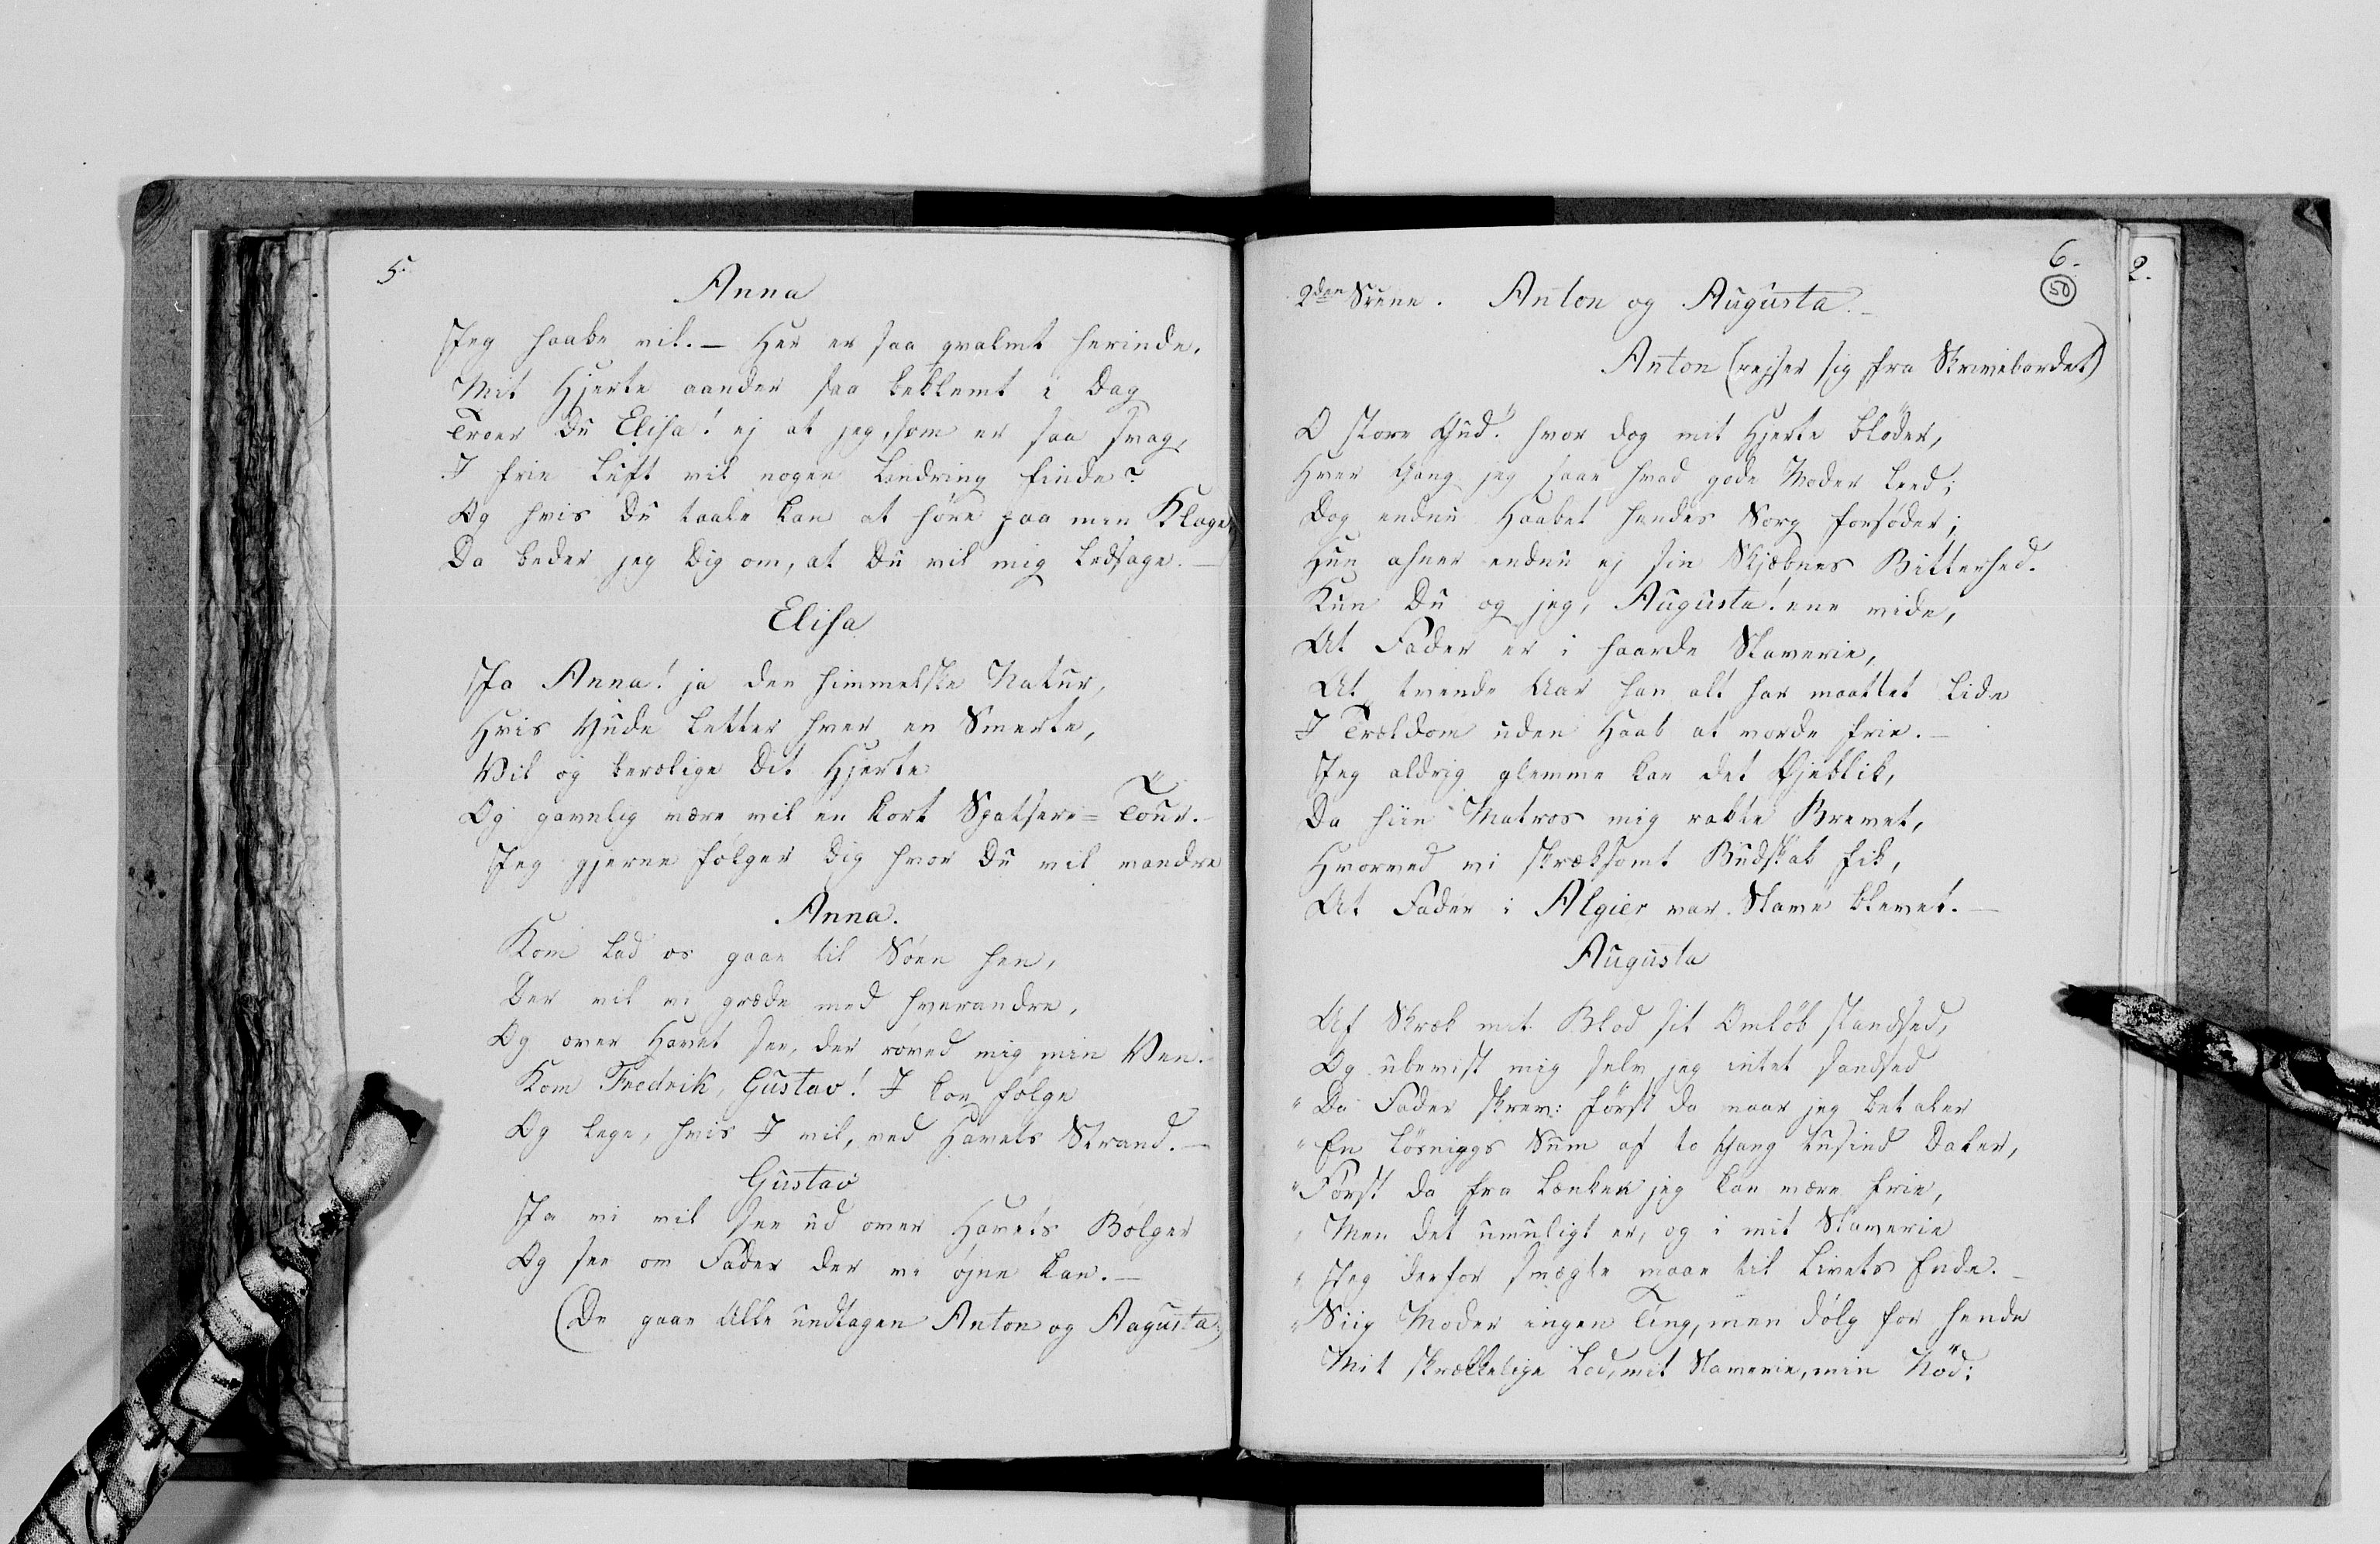 5.
Anna
Jeg haabe vil. — Her er saa qvalmt herinde,
Mit Hjerte aander saa beklemt i Dag
Troer Du Elisa! ej at jeg, som er saa svag,
I frie Luft vil nogen Lindring finde?
Og hvis Du taale kan at høre paa min Klage,
Da beder jeg Dig om, at Du vil mig ledsage. —
Elisa
Ja Anna! ja den himmelske Natur,
Hvis Ynde letter hver en Smerte,
Vil og berolige Dit Hjerte
Og gavnlig være vil en kort Spatsere=Tour.
Jeg gjerne følger Dig hvor Du vil vandre
Anna.
Kom lad os gaae til Søen hen,
Der vil vi græde med hverandre,
Og over Havet see, der røved mig min Ven.
Kom Fredrik, Gustav! I kan følge
Og lege, hvis I vil, ved Havets Strand. —
Gustav
Ja vi vil see ud over Havets Bølger
Og see om Fader der vi øjne kan. —
(De gaae Alle undtagen Anton og Augusta)
6.
50
2.
2den Scene. Anton og Augusta. —
Anton (rejser sig fra Skrivebordet)
O store Gud! hvor dog mit Hjerte bløder,
Hver Gang jeg saae hvad gode Moder leed;
Dog endnu Haabet hendes Sorg forsøder;
Hun ahner endnu ej sin Skjæbnes Bitterhed.
Kun Du og jeg, Augusta! ene vide,
At Fader er i haarde Slaverie,
At tvende Aar han alt har maattet lide
I Trældom uden Haab at vorde frie. —
Jeg aldrig glemme kan det Øjeblik,
Da hiin Matros mig rakte Brevet,
Hvorved vi skræksomt Budskab fik,
At Fader i Algier var Slave blevet. —
Augusta
Af Skræk mit Blod sit Omløb standsed,
Og ubevist mig selv jeg intet sandsed
" Da Fader skrev: først da naar jeg betaler
" En Løsniggs Sum af to Gang tusind Daler,
" Først da fra Lænker jeg kan være frie,
" Men det umuligt er, og i mit Slaverie
" Jeg derfor smægte maae til Livets Ende. —
" Siig Moder ingen Ting, men dølg for hende
Mit skrækkelige Lod, mit Slaverie, min Nød: